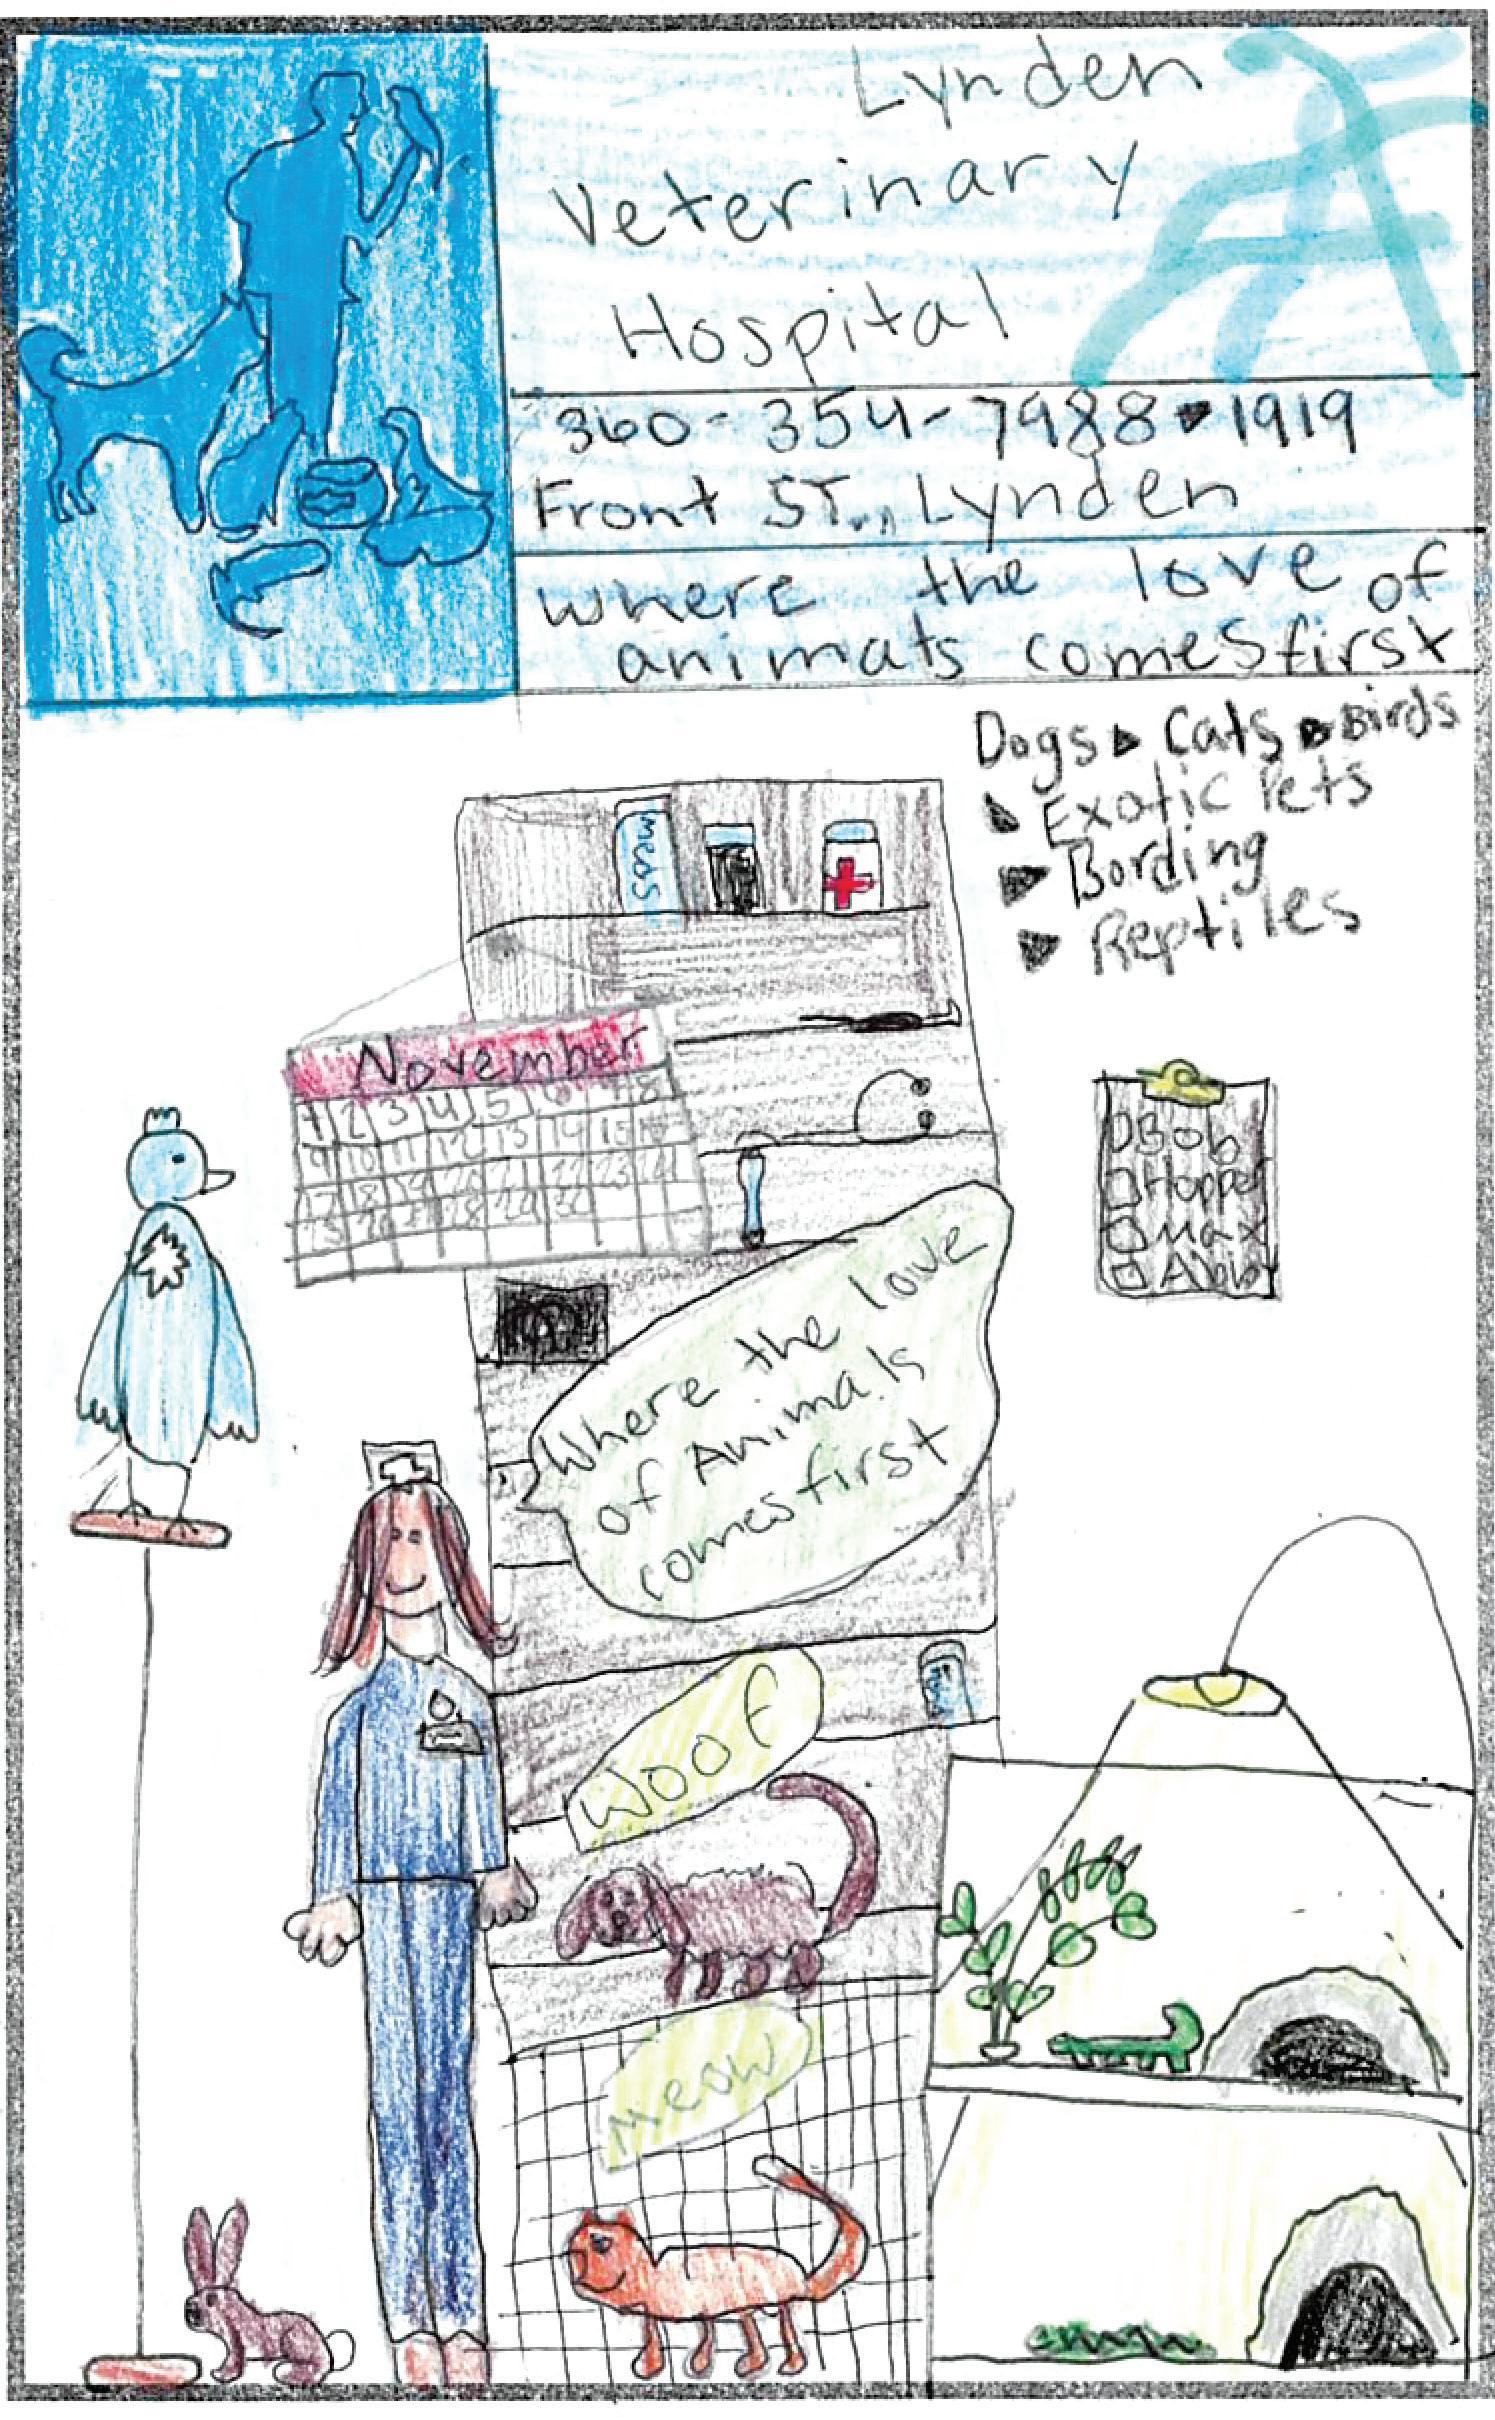 Lynden
Veterinary
Hospital
360-354-7988 ▸ 1919
Front ST., Lynden
where the love of
animals comes first
Dogs ▸ Cats ▸ Birds
▸ Exotic Pets
▸ Bording
▸ Reptiles
meds
November
1 2 3 4 5 6 7 8
9 10 11 12 13 14 15 16
17 18 19 20 21 22 23 24
25 26 27 28 29 30
Bob
Hopper
Max
Abby
Where the love
of Animals
comes first
Woof
Meow